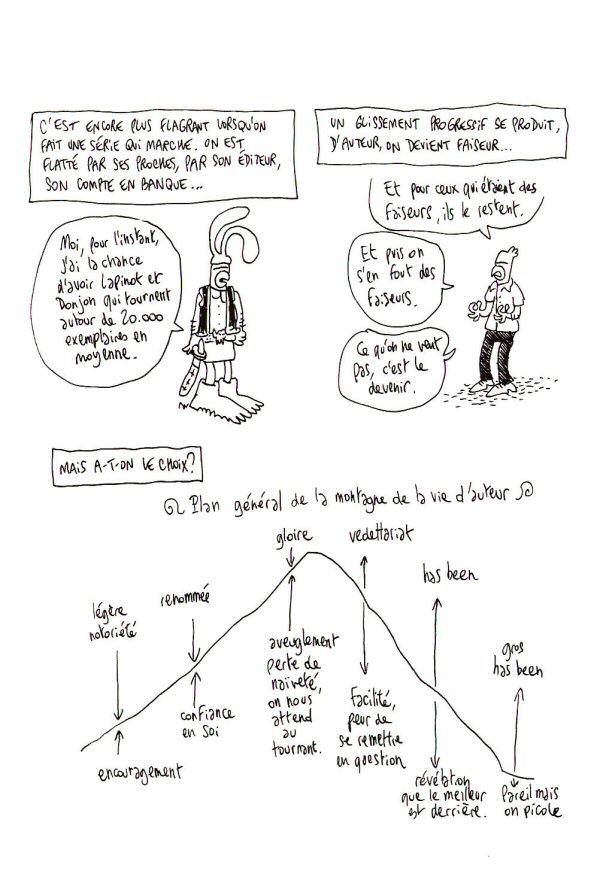 C'EST ENCORE PLUS FLAGRANT LORSQU'ON
FAIT UNE SÉRIE QUI MARCHE. ON EST
FLATTÉ PAR SES PROCHES, PAR SON ÉDITEUR,
SON COMPTE EN BANQUE...
Moi, pour l'instant,
j'ai la chance
d'avoir Lapinot et
Donjon qui tournent
autour de 20.000
exemplaires en
moyenne.
UN GLISSEMENT PROGRESSIF SE PRODUIT,
D'AUTEUR, ON DEVIENT FAISEUR...
Et pour ceux qui étaient des
faiseurs, ils le restent.
Et puis on
s'en fout des
faiseurs.
Ce qu'on ne veut
pas, c'est le
devenir.
MAIS A-T-ON LE CHOIX?
Plan général de la montagne de la vie d'auteur
légère
notoriété
encouragement
renommée
confiance
en soi
gloire
aveuglement
perte de
naïveté,
on nous
attend
au
tournant.
vedettariat
Facilité,
peur de
se remettre
en question
has been
révélation
que le meilleur
est derrière.
gros
has been
Pareil mais
on picole